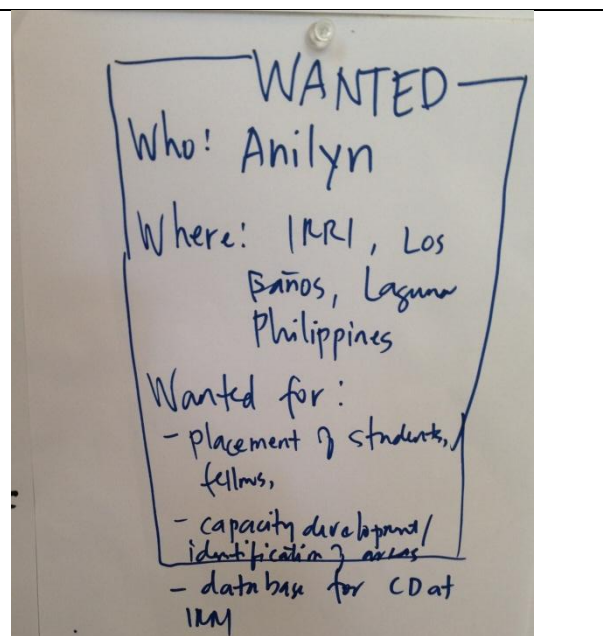 WANTED
Who: Anilyn
Where: IRRI, Los
Baños, Laguna
Philippines
Wanted for:
- placement of students,
fellows,
- capacity development/
identification of areas
- database for CD at
IRRI